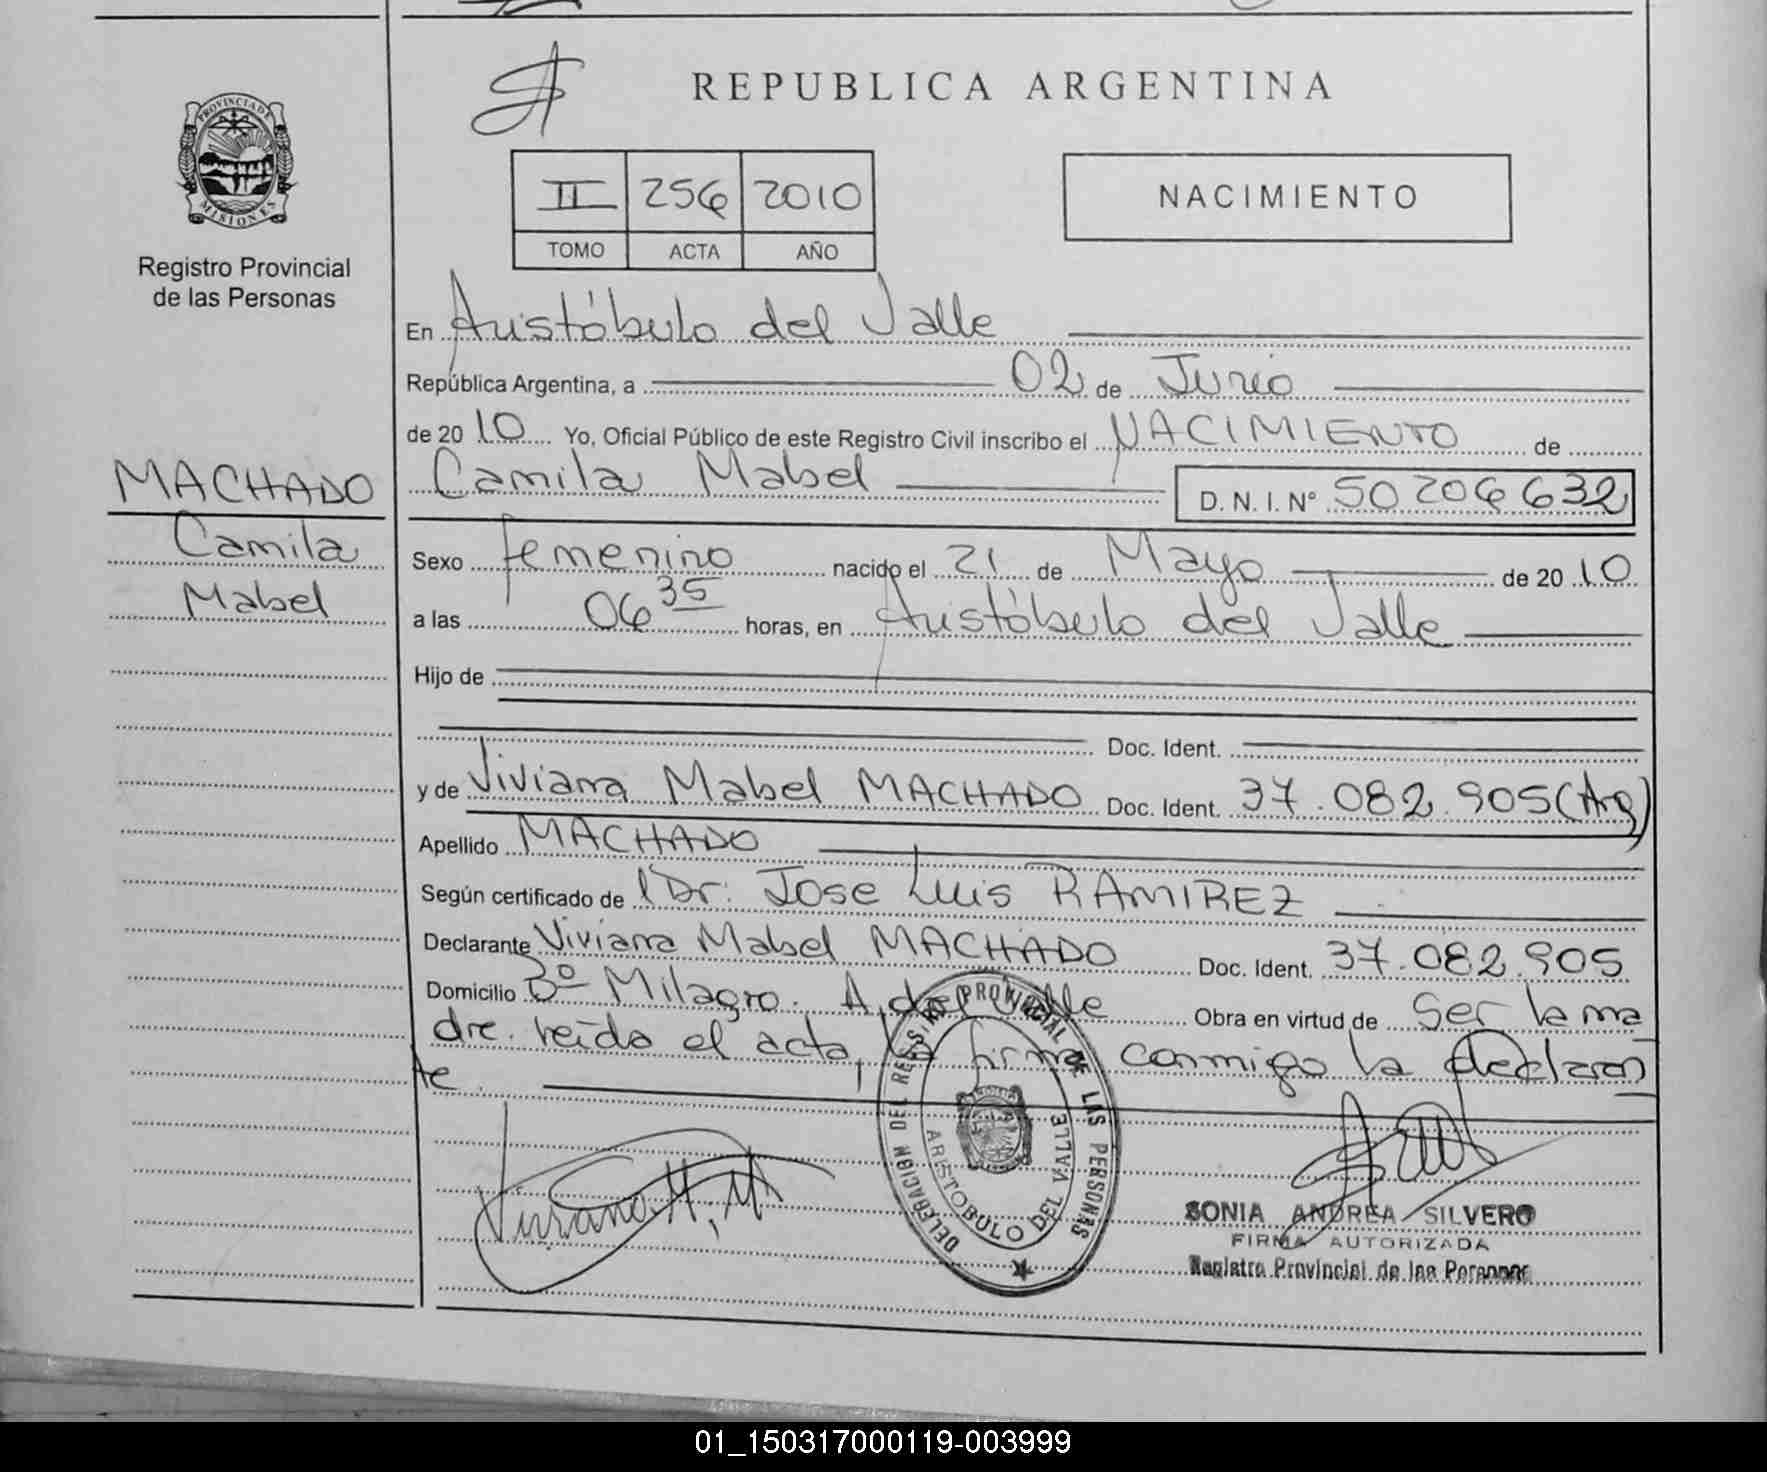 REPUBLICA ARGENTINA
PROVINCIA DE MISIONES
Registro Provincial
de las Personas
II 256 2010
TOMO ACTA AÑO
NACIMIENTO
En Aristóbulo del Valle
República Argentina, a 02 de Junio
de 2010 Yo, Oficial Público de este Registro Civil inscribo el NACIMIENTO de
Camila Mabel D.N.I. Nº 50206632
MACHADO
Camila
Mabel
Sexo femenino nacido el 21 de Mayo de 2010
a las 06 35 horas, en Aristóbulo del Valle
Hijo de
Doc. Ident.
y de Viviana Mabel MACHADO Doc. Ident. 37.082.905 (Arg)
Apellido MACHADO
Según certificado de l Dr: Jose Luis RAMIREZ
Declarante Viviana Mabel MACHADO Doc. Ident. 37.082.905
Domicilio Bº Milagro. A. del Valle Obra en virtud de ser la ma
dre. leída el acta, la firma conmigo la declaran
te.
Viviana M, M
DELEGACION DEL REGISTRO PROVINCIAL DE LAS PERSONAS
ARISTOBULO DEL VALLE
SONIA ANDREA SILVERO
FIRMA AUTORIZADA
Registro Provincial de las Personas
01_150317000119-003999